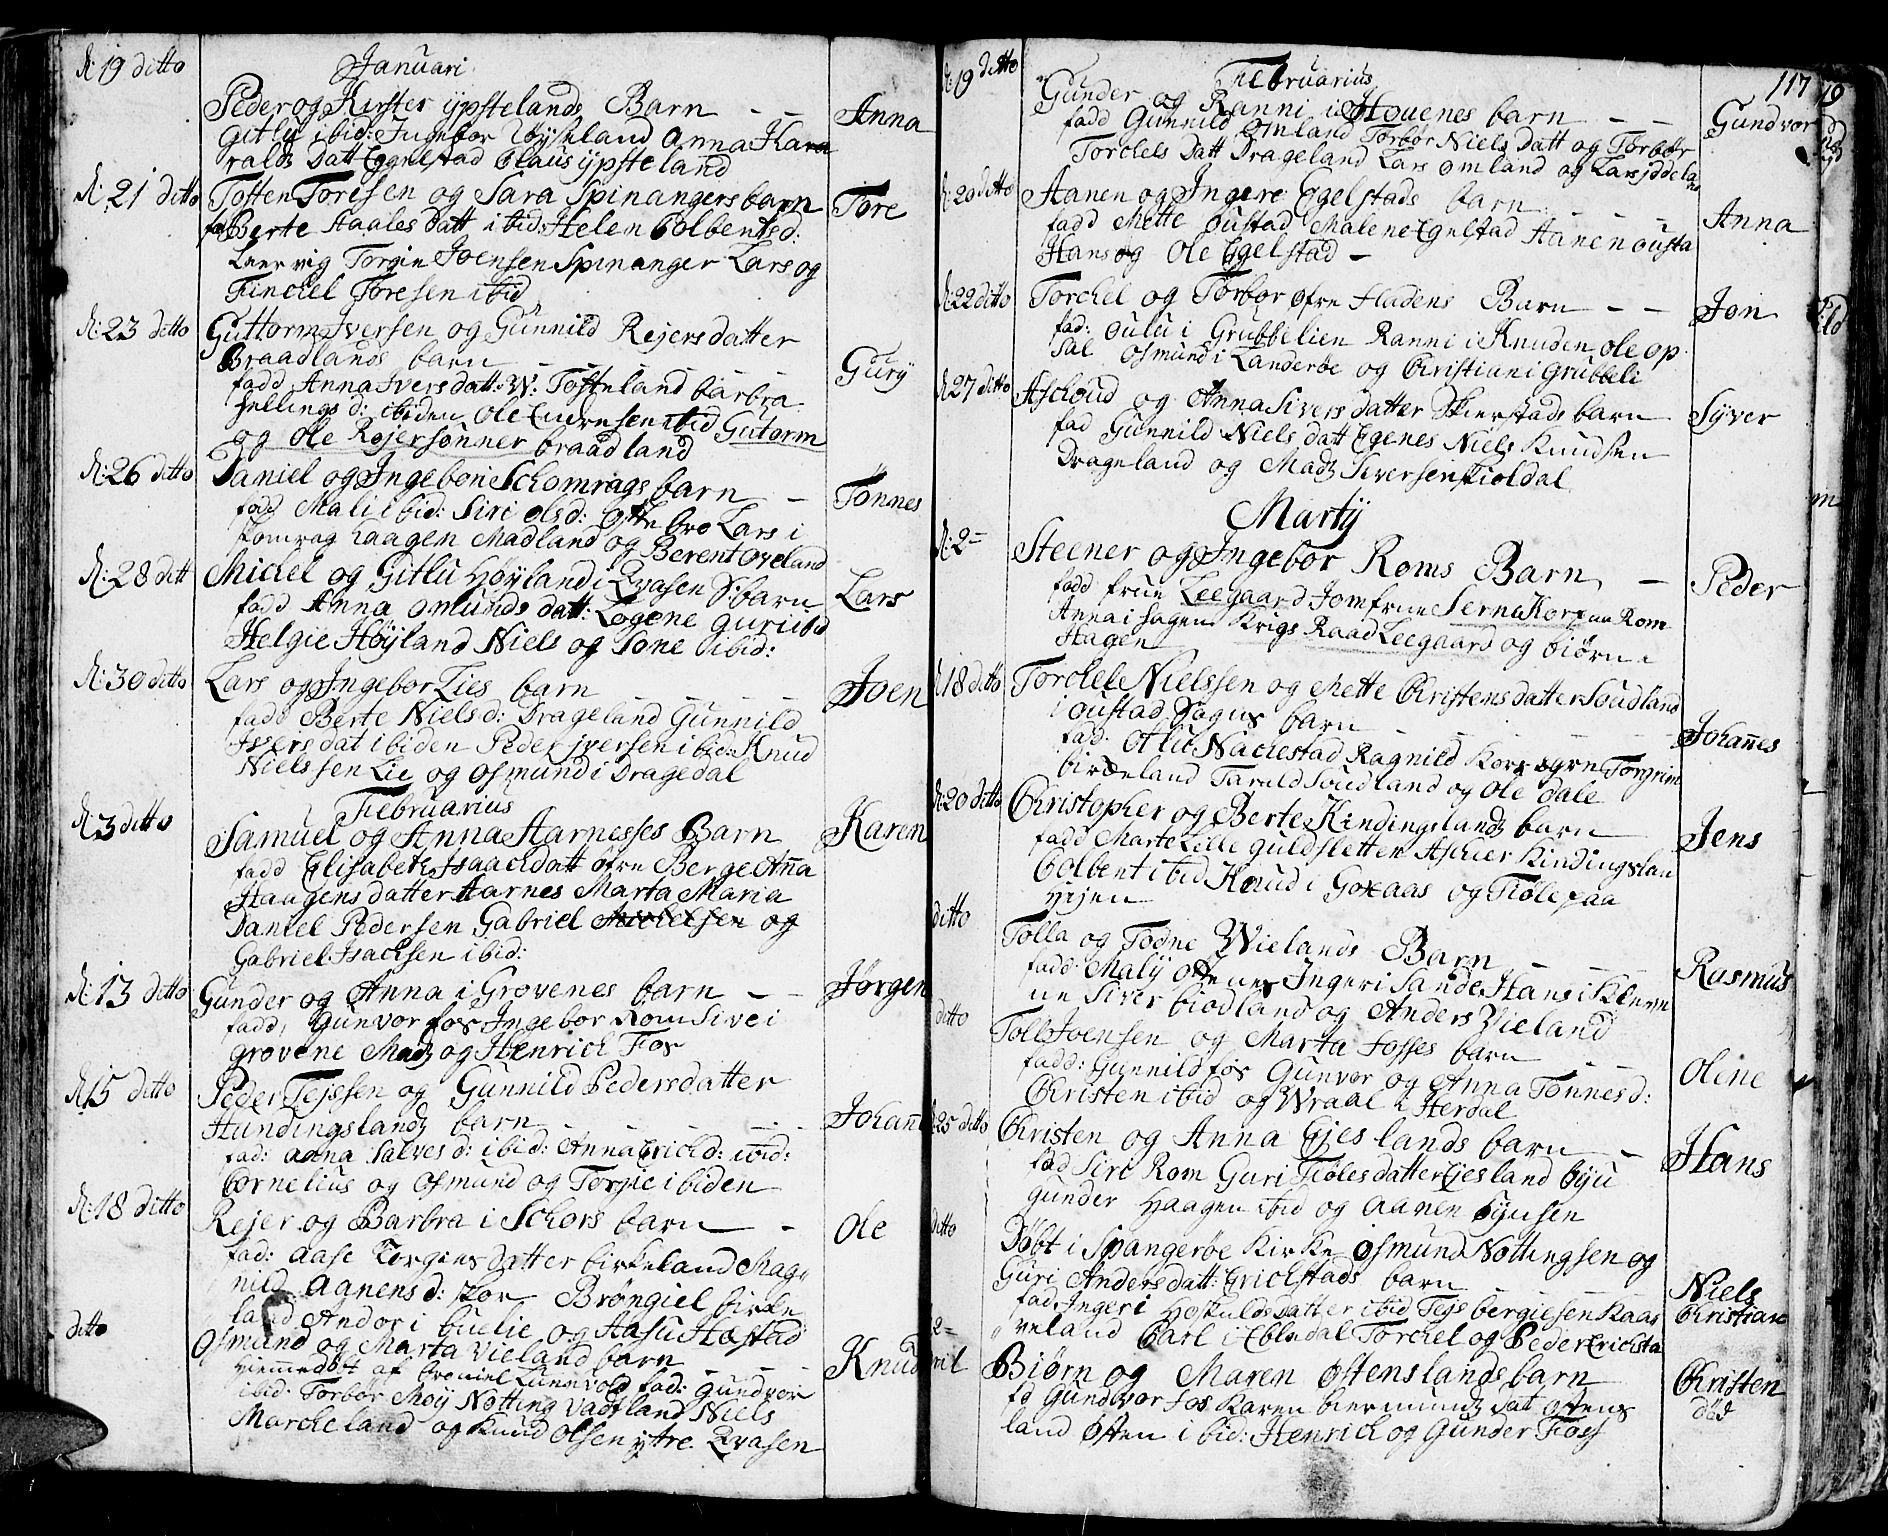 Januari
d: 19 ditto
Peder og Kirster ÿpstelands Barn — — Anna
Gitlu ibid: Ingebor Høyseland Anna Hara
ralds Datt Egelstad Claus ÿpsteland
d: 21 ditto Tosten Toresen og Sara Spinangers barn Tore
Berte Staales Datt ibid: Helen Colbents d:
Torgie Joensen Spinanger Lars og
Finchel Toresen ibid
d: 23 ditto Guttorm Iversen og Gunnild Rejersdatter
Braadlands barn — — — Gurÿ
fadd Anna Ivers datt: W: Tosteland barbra
hellings d: ibiden Ole Endresen ibid Gutorm
og Ole Rejersønner braadland
d: 26 ditto Daniel og Ingebor Schomrags barn — Tønnes
fadd Mali ibid: Siri Ols d: Lars i
Komrag Haagen Madland og Berent Oveland
d: 28 ditt Michel og Gitlu Høyland i Qvasen S: barn Lars
fadd Anna Omunds datt: Løgene Guri ibid
Helgie Høyland Niels og Tone ibid:
d: 30 ditto Lars og Ingebor Lies barn — — — Joen
fadd Berte Niels d: Drageland Gunnild
Ivers dat ibiden Peder Iversen ibid: Knud
Nielssen Lie og Osmund i Dragedal
Februarius
d: 3 ditto Samuel og Anna Aarnesses Barn Karen
fadd Elisabeth Isaachdatt øfre Berge Anna
Haagens datter Aarnes Marta Maria
Daniel Pedersen Gabriel Michelsen og
Gabriel Isachsen ibid:
d: 13 ditto Gunder og Anna i Grovenes barn — — Jørgen
fadd, Gunvor fos Ingebor Rom Sive i
grovene Madz og Henrich Fos
d: 15 ditto Peder Tejssen og Gunnild Pedersdatter
Hundingslands barn — — — Johann
fad: Anna Salves d: ibid: Anna Erichd: ibid:
Cornelius og Osmund og Torgie ibiden
d: 18 ditto Rejer og Barbra i Schors barn — — Ole
fad: Aase Torgiens datter birkeland Mag-
nild Agnens d: Skor Brøngiel birke
land Andor i buelie og Aasu Hestad
ditto Osmund og Marta Vieland barn — — Knud
Hiemmedøbt af Broniel Lunnvold fad: Gundvor
ibid: Torbør Moÿ Notting Vadtland Niels
Marcheland og Knud Olsen ytre Qvasen
117
Februarius
d: 19 ditto Gunder og Ranni i Hovenes barn — — Gundvor
fadd Gunnild Omland Torbør Niels Datt og Torbør
Torchels Datt Drageland Lars Omland og Lars
d: 20 ditto Aanen og Ingere Egelstads barn — — — Anna
fadd Mette Oustad Malene Egelstad Aanen Ousta
Hans og Ole Egelstad —
d: 22 ditto Torchel og Torbor øfre Stadens Barn — — Jon
fad: Oulu i Grubbelien Ranni i Knuden Ole op
sal Osmund i Landerøe og Christian i Grubbeli
d: 27 ditto Aschoud og Anna Sivers datter Skierstads barn Sÿver
fad Gunnild Niels datt Egenes Niels Knudsen
Drageland og Madz Siversen Kioldal
Martÿ
d: 2 – Steener og Ingebor Roms Barn — Peder
fadd frue Leegaard Jomfrue Serna Korf aa Rom
Anna i hagen Krigs Raad Leegaard og biørn i
Hagen
d: 18 ditto Torchel Nielssen og Mette Christens datter Soudland
i Oustad Sogns barn — — — Johannes
fad: Alit Nachestad Ragnild Kors øgre Torgrim
birkeland Tarald Soudland og Ole Dale
d: 20 ditto Christopher og Berte Kindingslands barn Jens
fadd Marte Lille guldsletten Aschier Kindingslan
Colbent ibid Knud i Goxaas og Tiøle paa
Hejen
ditto Tolla og Todne Wielands Barn — — Rasmus
fadd: Malÿ Inger i Sande Hans i Kleve
ne Siver biodland og Anders Vieland
ditto Toll Joensen og Marta Fosses barn — Oline
fadd: Gunnild fos Gunvor og Anna Tønnes d:
Christen ibid og Wraal i Herdal
d: 25 ditto Christen og Anna Ejes lands barn — Hans
fad Siri Rom Guri Tiøles datter Ejesland
Gunder Haagen ibid og Aanen
ditto Døbt i Spangerøe Kirke Osmund Nottingsen og
Guri Anders datt: Erichstads barn Niels
fad: Inger i Hoskulds datter ibid Tejs bergiesen Raas Christian
veland Carl i Ebledal Torchel og Peder Erichsta
2 – Biørn og Maren Ostenslands barn Christen
fd Gundvor Fos Karen biermunds dat Ostens død
land Østen ibid: Henrich og Gunder Foss